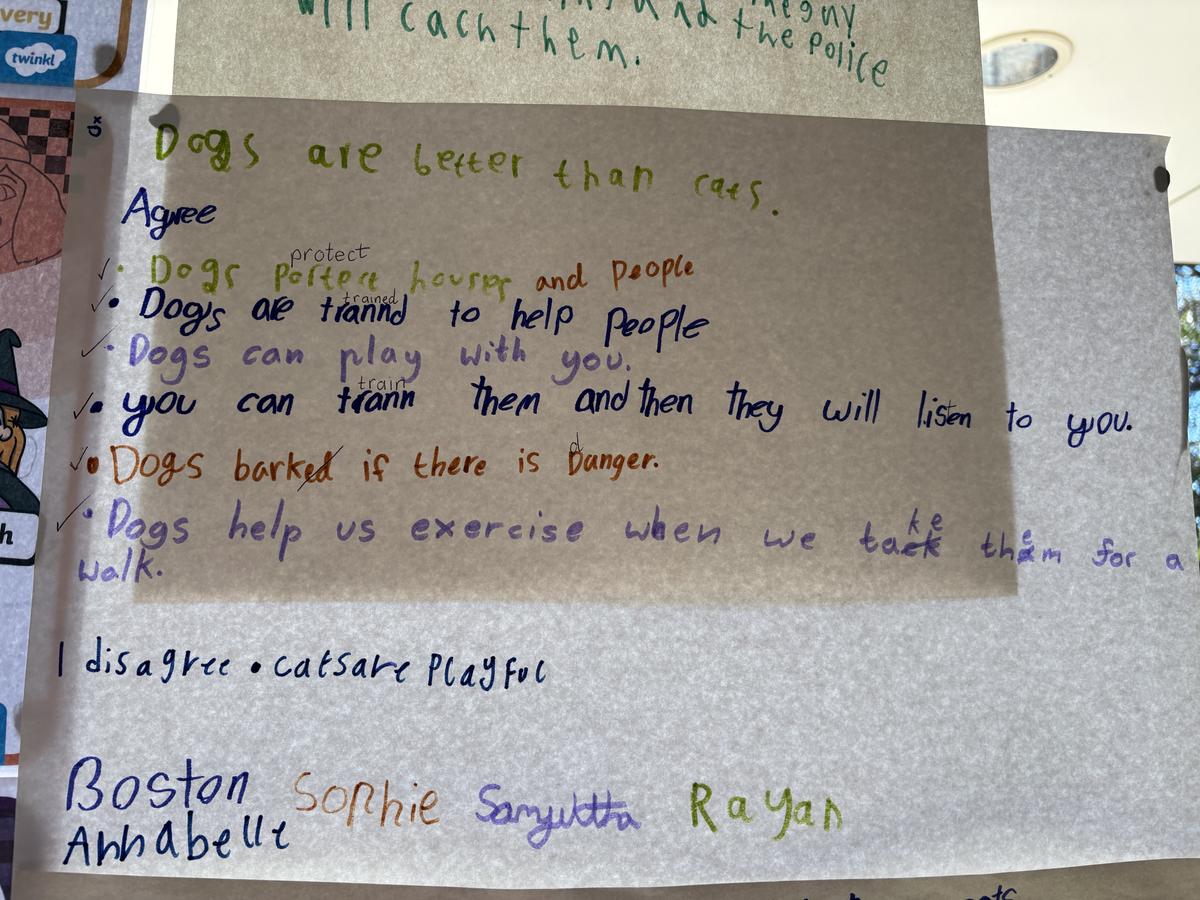 very
twinkl
will cach them.
and the police
Dogs are better than cats.
Agree
protect
Dogs portect houses and people
trained
Dogs are trannd to help people
Dogs can play with you.
train
you can trann them and then they will listen to you.
d
Dogs barked if there is Danger.
ke e
Dogs help us exercise when we tack them for a
walk.
h
I disagree • catsare Playful
Boston Sophie Sanyuktha Rayan
Annabelle